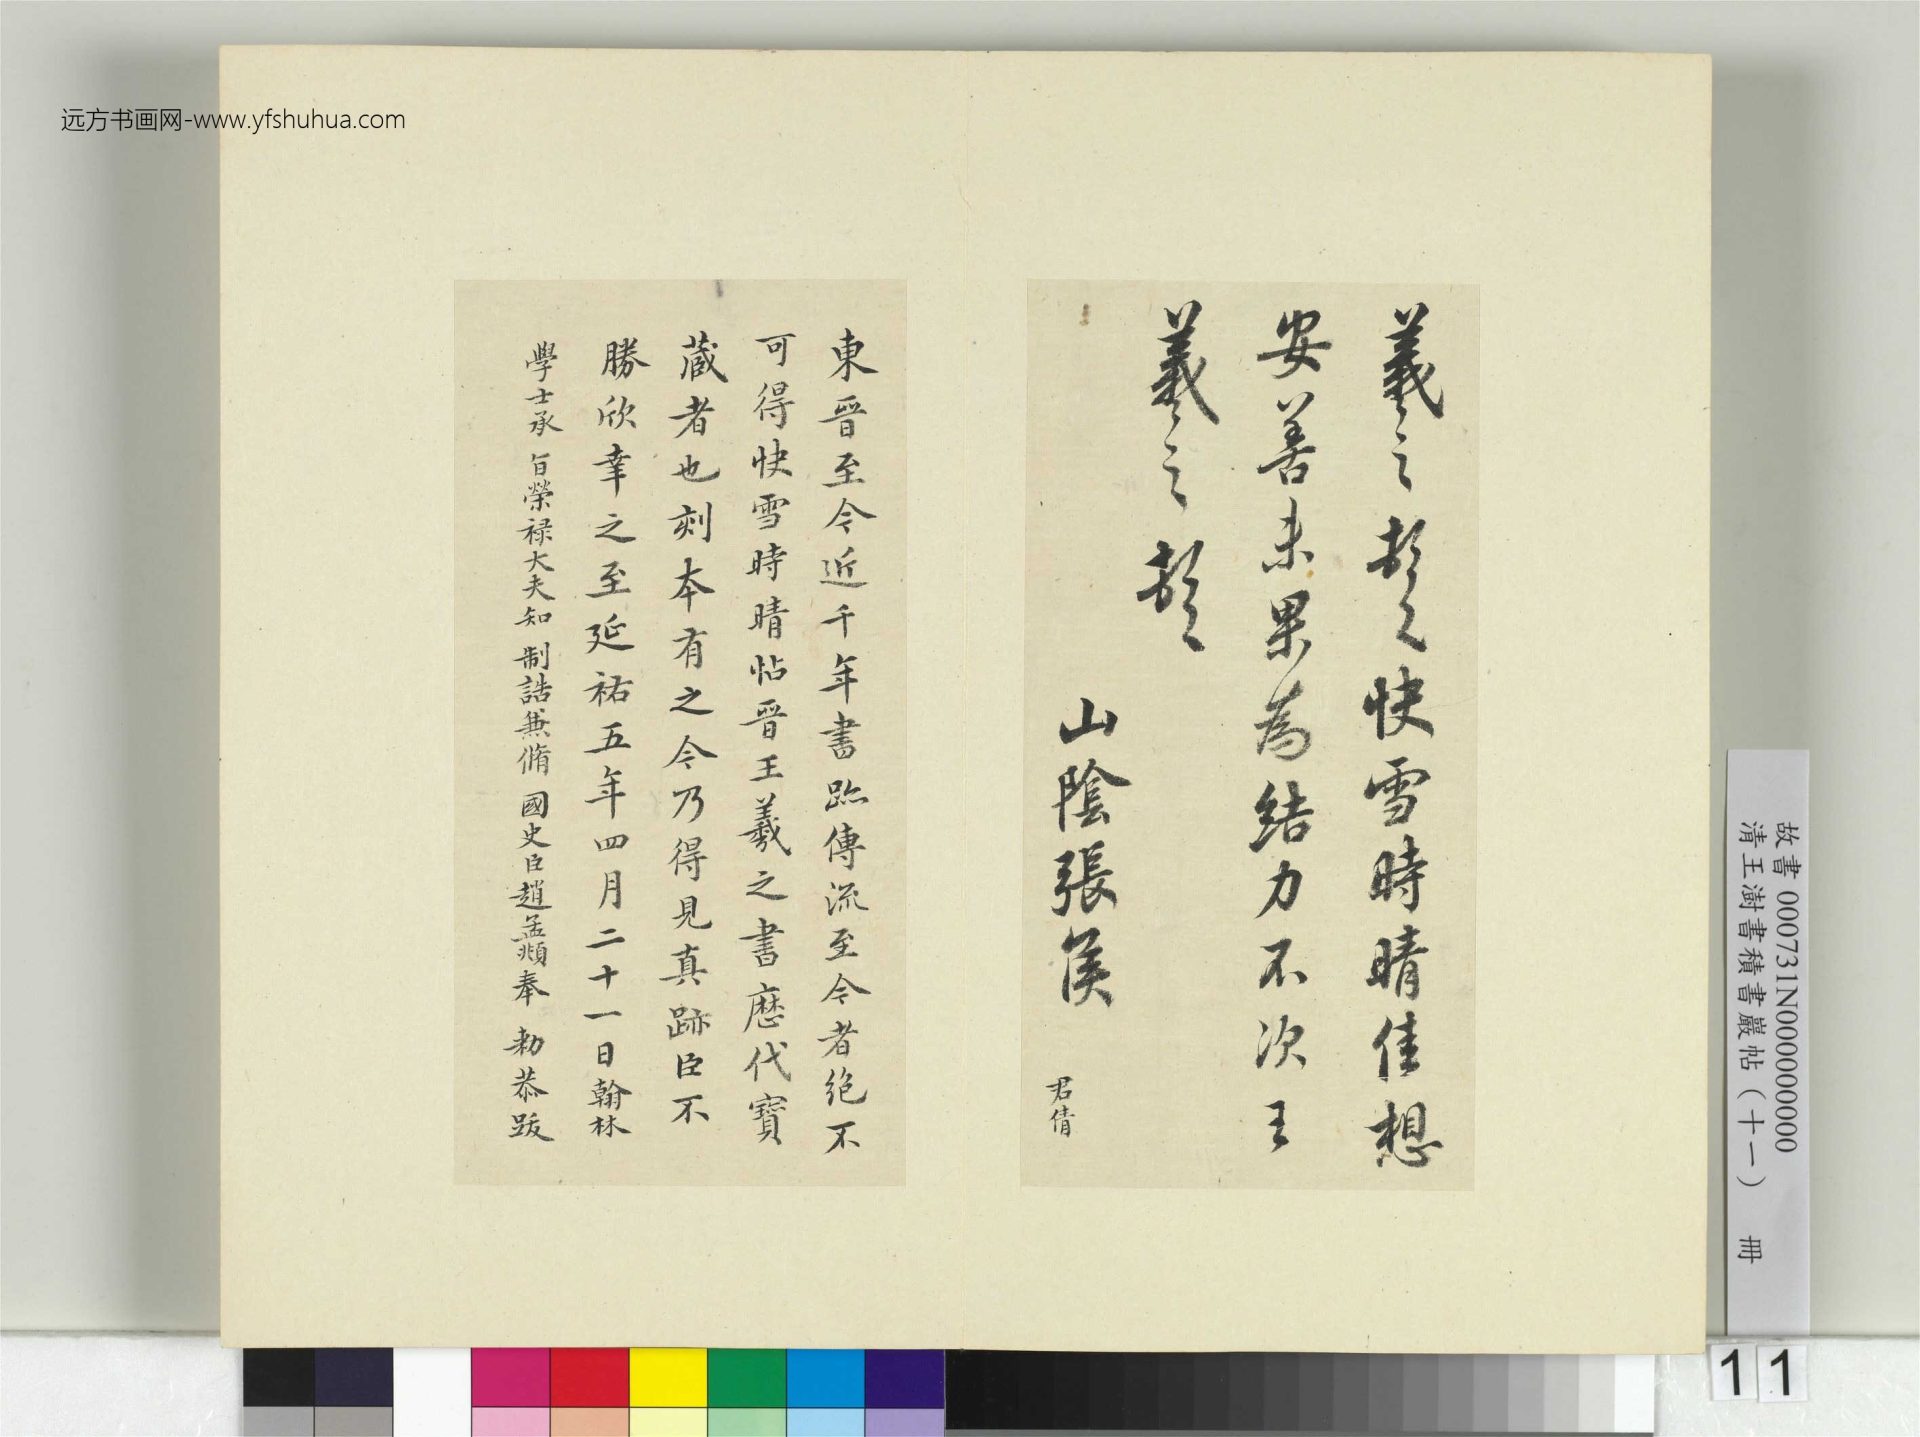 远方书画网-www.yfshuhua.com
羲之頓首快雪時晴佳想
安善未果為結力不次王
羲之頓首
山陰張侯
君倩
東晉至今近千年書跡傳流至今者絶不
可得快雪時晴帖晉王羲之書歷代寶
蔵者也刻本有之今乃得見真跡臣不
勝欣幸之至延祐五年四月二十一日翰林
學士承旨榮禄大夫知制誥兼脩國史臣趙孟頫奉勅恭跋
故書000731N000000000
清王澍書積書巖帖（十一） 冊
11